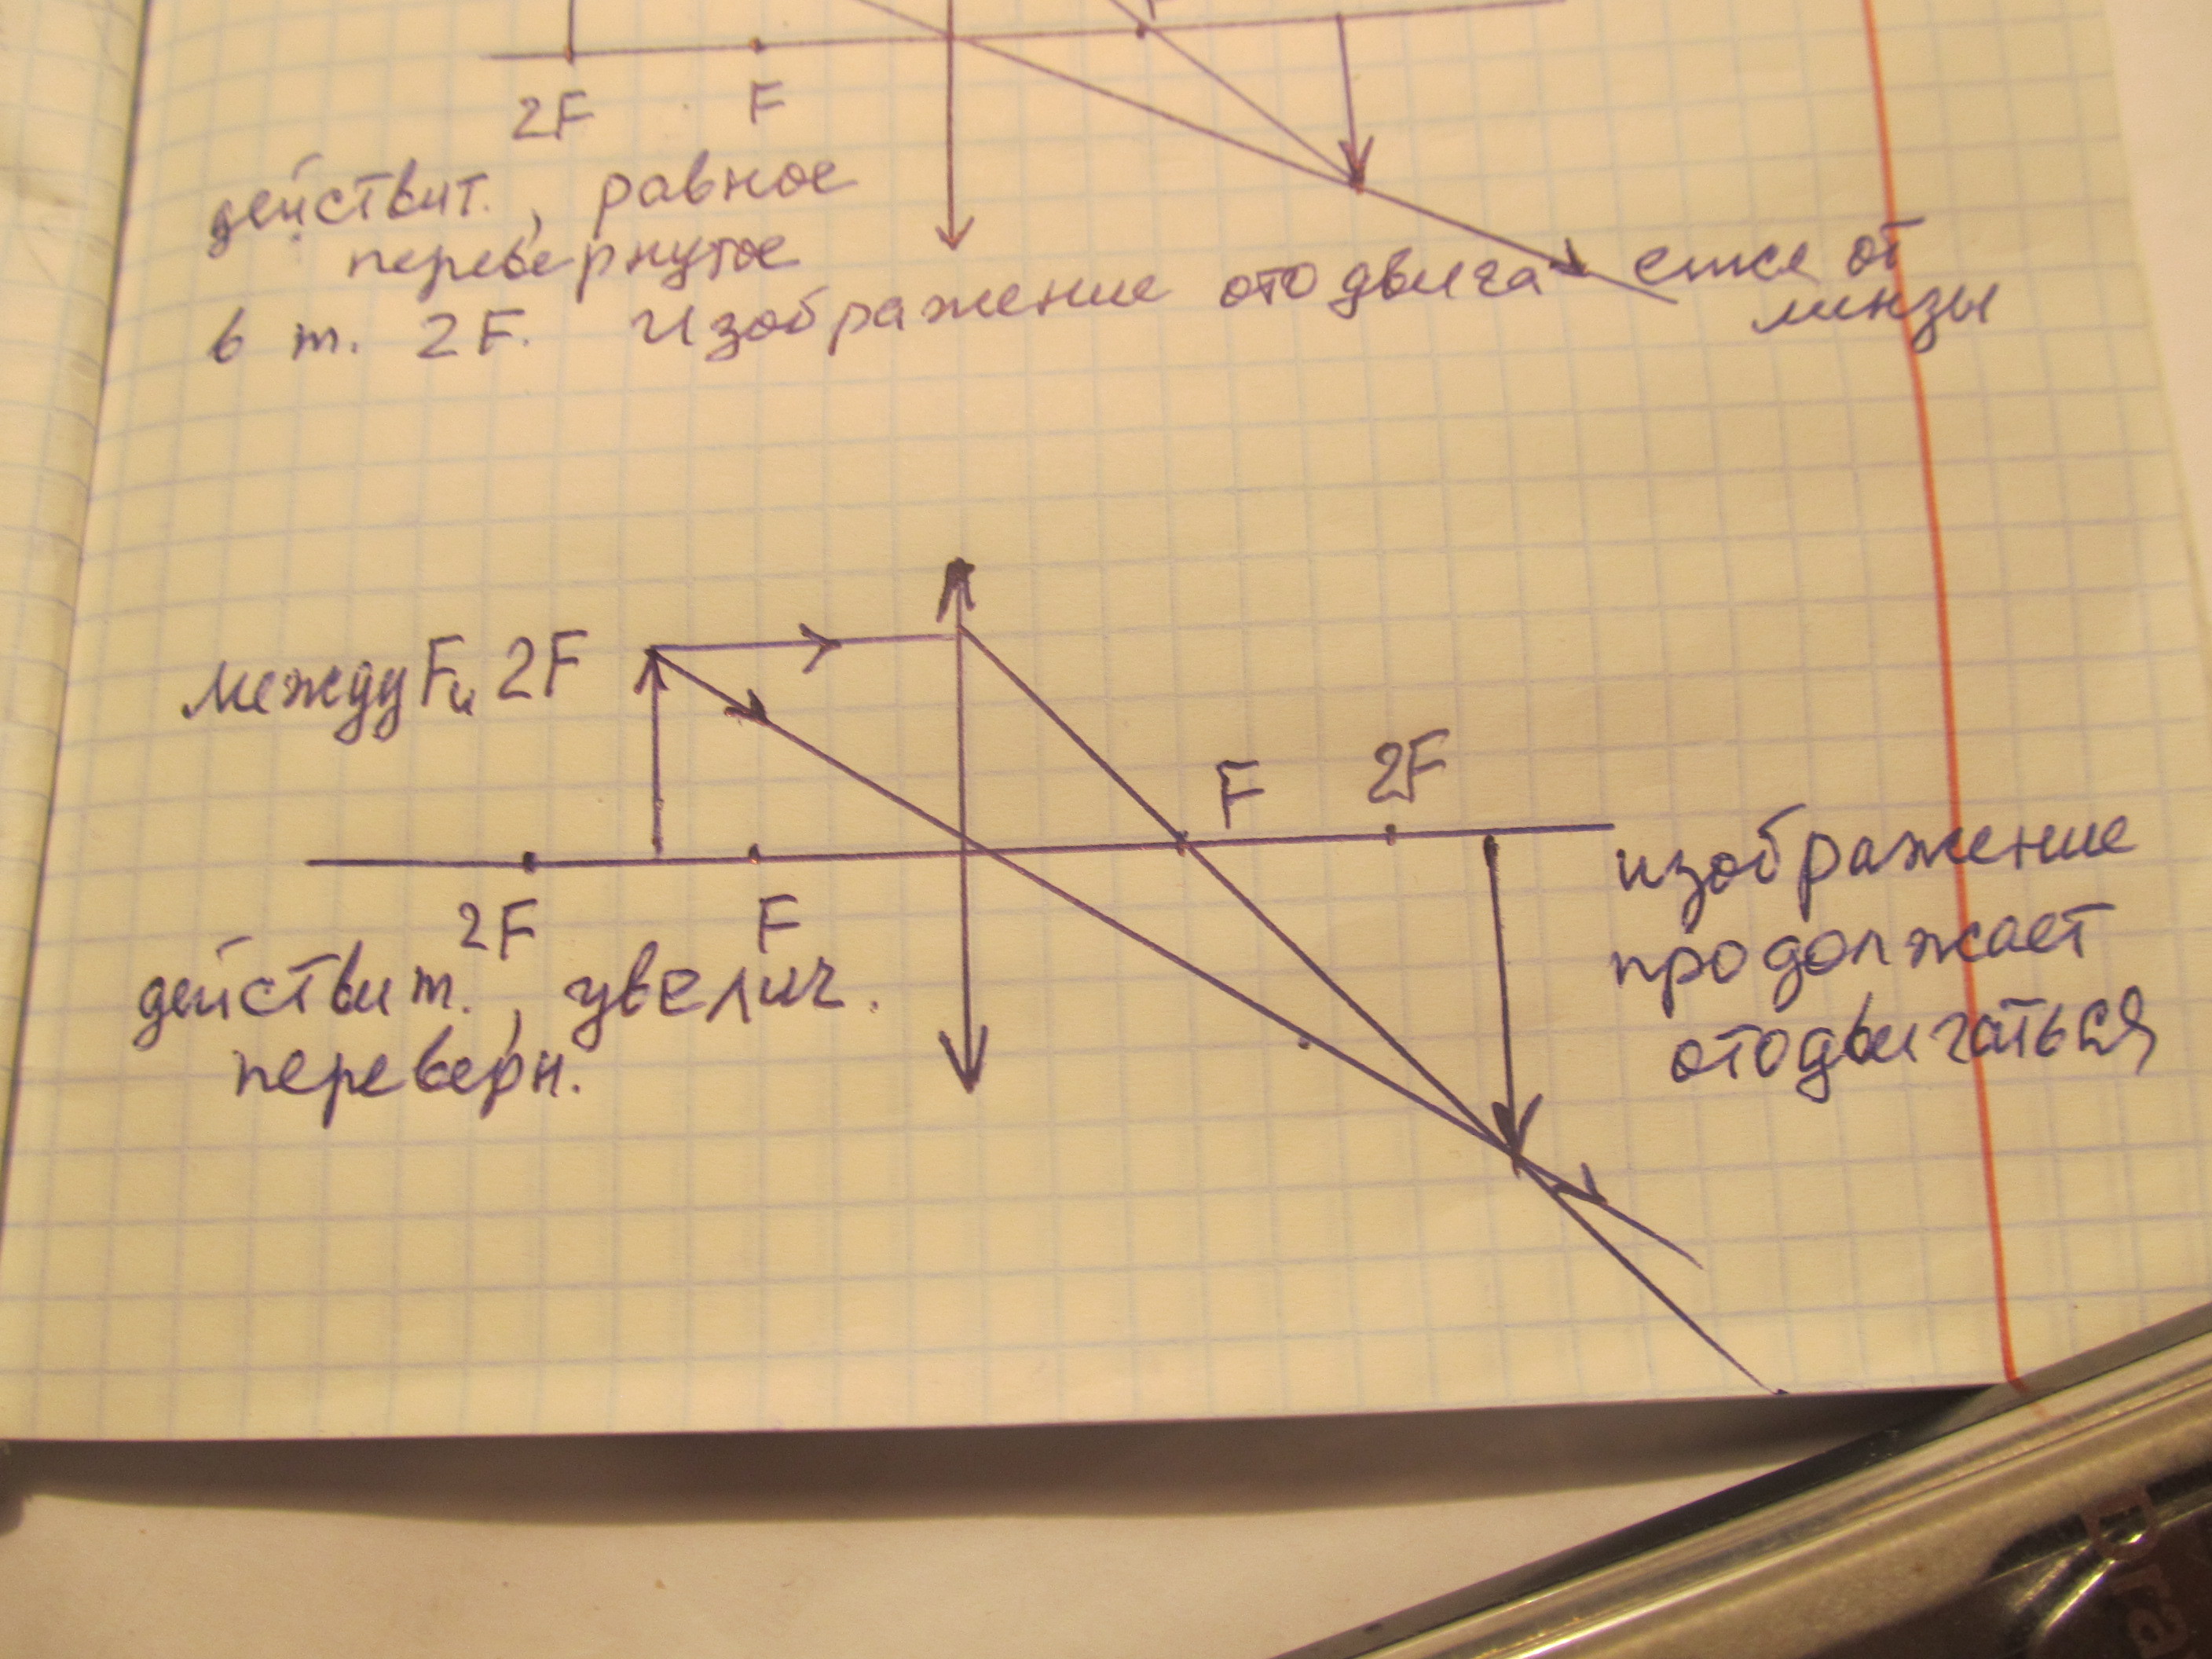 2F F
действит., равное
перевернутое
в т. 2F. Изображение отодвига ется от
линзы
между F и 2F
F 2F
2F F
действит., увелич.
переверн.
изображение
продолжает
отодвигаться